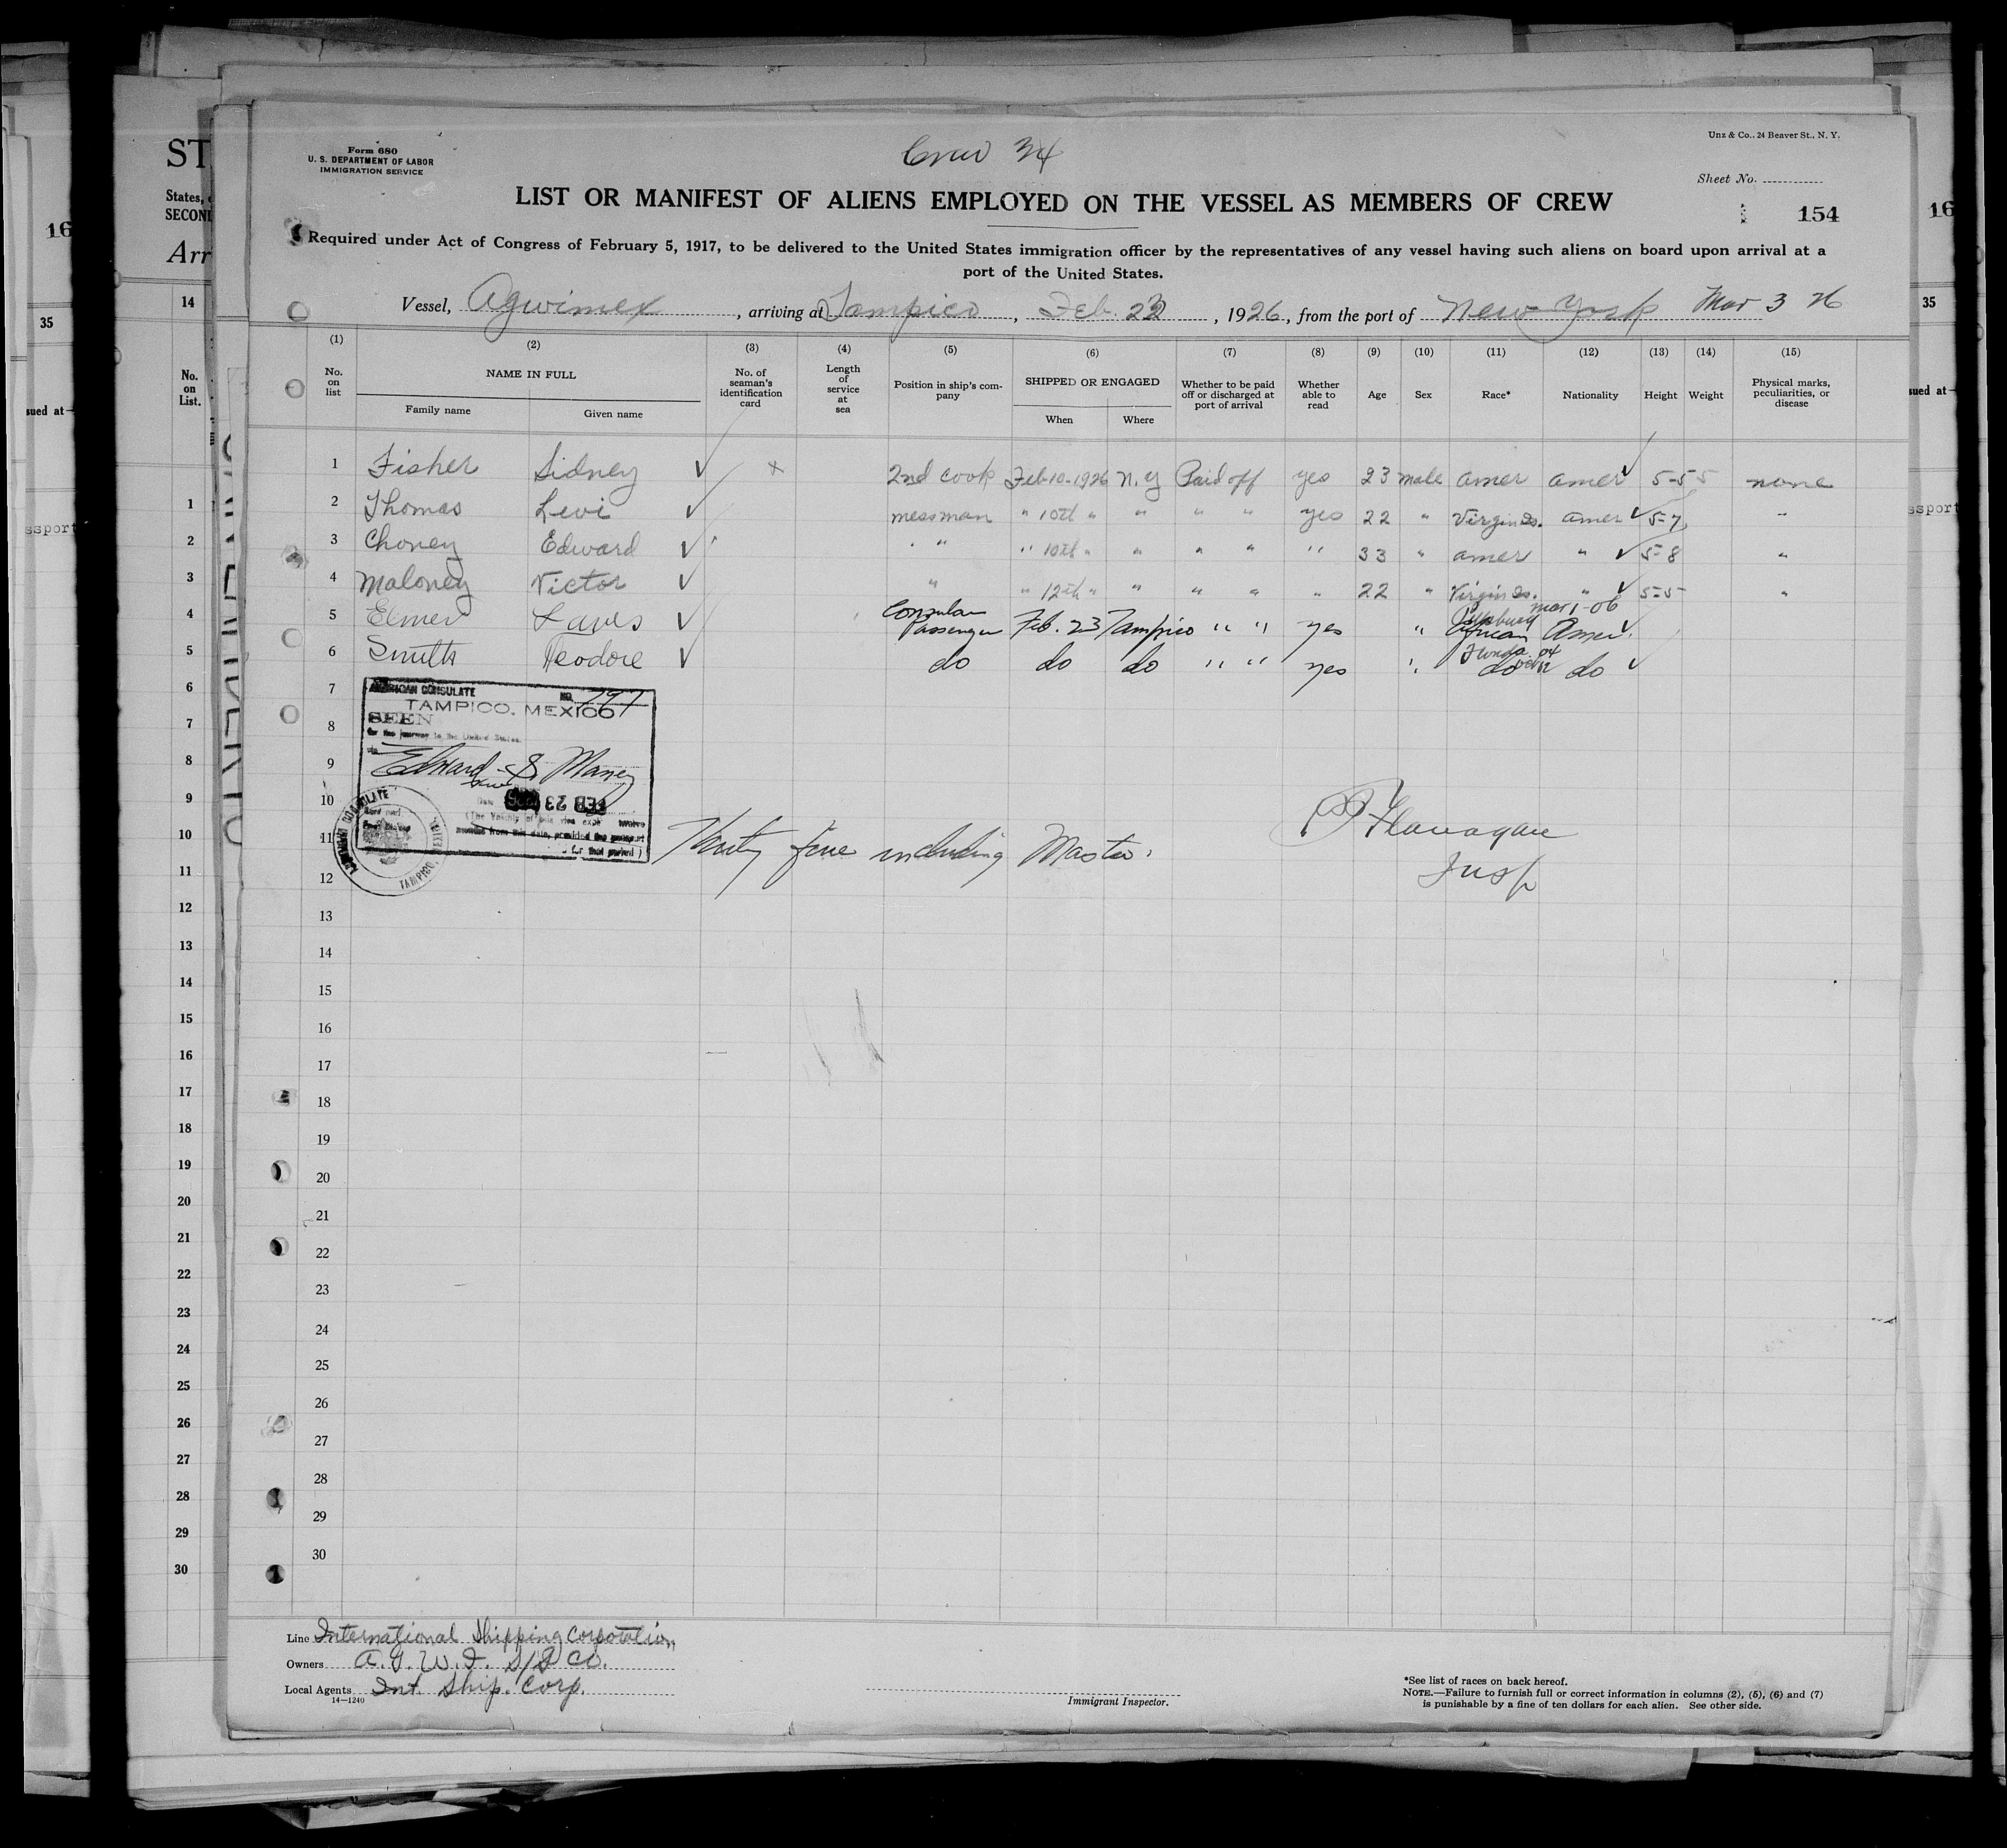 Form 680
U. S. DEPARTMENT OF LABOR
IMMIGRATION SERVICE
Crew 34
Unz & Co., 24 Beaver St., N. Y.
Sheet No.
LIST OR MANIFEST OF ALIENS EMPLOYED ON THE VESSEL AS MEMBERS OF CREW
154
Required under Act of Congress of February 5, 1917, to be delivered to the United States immigration officer by the representatives of any vessel having such aliens on board upon arrival at a
port of the United States.
Vessel, Agwimex, arriving at Tampico, Feb. 23, 1926, from the port of New York Mar 3 26
(1) (2) (3) (4) (5) (6) (7) (8) (9) (10) (11) (12) (13) (14) (15)
No. on list
NAME IN FULL
Family name Given name
No. of seaman's identification card
Length of service at sea
Position in ship's company
SHIPPED OR ENGAGED
When Where
Whether to be paid off or discharged at port of arrival
Whether able to read
Age
Sex
Race*
Nationality
Height
Weight
Physical marks, peculiarities, or disease
1 Fisher Sidney ✓ x 2nd cook Feb 10-1926 N.Y Paid off yes 23 male amer amer ✓ 5-5 5 none
2 Thomas Levi ✓ messman " 10th " " " " yes 22 " Virgin Is. amer ✓ 5-7 "
3 Choney Edward ✓ " " 10th " " " " " 33 " amer " ✓ 5-8 "
4 Maloney Victor ✓ " " 12th " " " " " 22 " Virgin Is. " ✓ 5-5 "
mar 1-06
5 Elmer ✓ Consular Passenger Feb. 23 Tampico " " yes " African Amer. ✓
Florida 04
6 Smith Teodore ✓ do do do " " yes " do do ✓
7
AMERICAN CONSULATE NO. 791
TAMPICO, MEXICO
8
SEEN
for the journey to the United States.
via
9
Edward S. Maney
10
Date FEB 23
(The validity of this visa expires twelve
11
months from this date, provided the passport
for that period)
AMERICAN CONSULATE
TAMPICO, MEXICO
Thirty five including Master.
Flanagan
Insp
12
13
14
15
16
17
18
19
20
21
22
23
24
25
26
27
28
29
30
Line International Shipping Corporation
Owners A. G. W. I. S/S Co.
Local Agents Int. Ship. Corp.
14—1240
Immigrant Inspector.
*See list of races on back hereof.
NOTE.—Failure to furnish full or correct information in columns (2), (5), (6) and (7)
is punishable by a fine of ten dollars for each alien. See other side.
ST
States,
SECOND
Arr
14
No. on List.
1
2
3
4
5
6
7
8
9
10
11
12
13
14
15
16
17
18
19
20
21
22
23
24
25
26
27
28
29
30
16
35
sued at—
ssport
16
35
sued at—
ssport